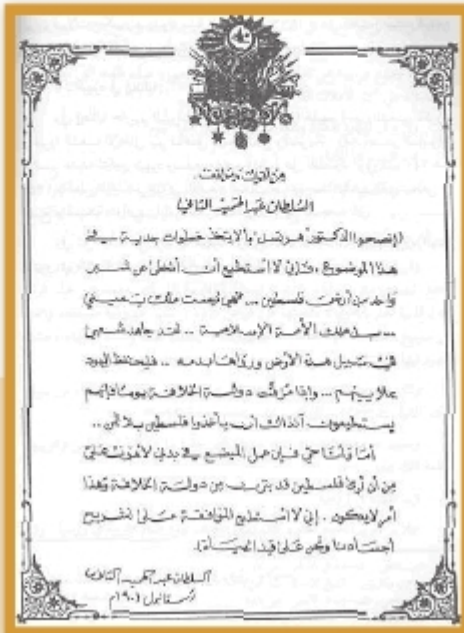 من أقوال ومواقف
السلطان عبد الحميد الثاني
إنصحوا الدكتور هرتزل بألا يتخذ خطوات جدية في
هذا الموضوع، فإني لا أستطيع أن أتخلى عن شبر
واحد من أرض فلسطين ... فهي ليست ملك يميني
... بل ملك الأمة الإسلامية .. لقد جاهد شعبي
في سبيل هذه الأرض ورواها بدمه .. فليحتفظ اليهود
بملايينهم ... وإذا مزقت دولة الخلافة يوماً فإنهم
يستطيعون آنذاك أن يأخذوا فلسطين بلا ثمن ..
أما وأنا حي فإن عمل المبضع في بدني لأهون عليّ
من أن أرى فلسطين قد بترت من دولة الخلافة وهذا
أمر لا يكون . إني لا أستطيع الموافقة على تشريح
أجسادنا ونحن على قيد الحياة).
السلطان عبد الحميد الثاني
استانبول ١٩٠١م